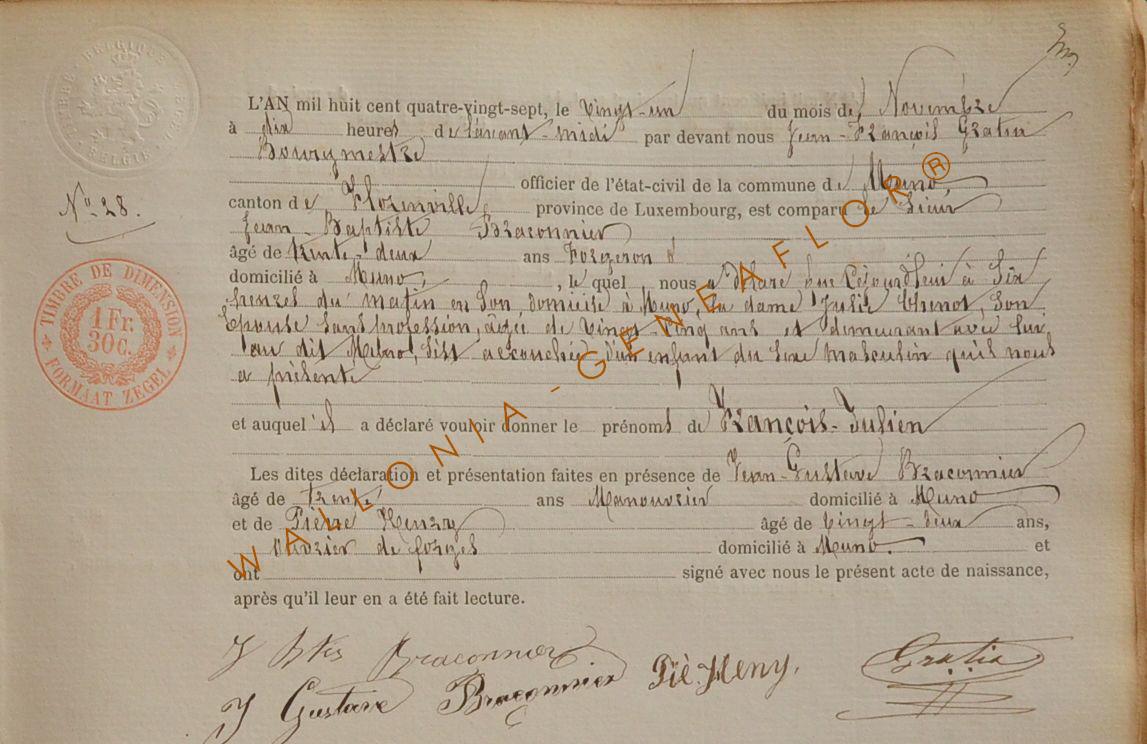 BELGIQUE
BELGIE
L'AN mil huit cent quatre-vingt-sept, le Vingt-un du mois de Novembre
à dix heures de l'avant-midi par devant nous Jean-François Gratia
Bourgmestre
officier de l'état-civil de la commune de Muno,
No. 28.
canton de Florenville, province de Luxembourg, est comparu le Sieur
Jean-Baptiste Braconnier
âgé de trente-deux ans Forgeron
domicilié à Muno, , le quel nous a déclaré que Cejourd'hui à Six
heures du matin en Son domicile à Muno, la dame Julie Thenot, Son
Epouse Sans profession, âgée de Vingt-Cinq ans et demeurant avec lui
au dit Muno, S'est accouchée d'un enfant du Sexe masculin qu'il nous
a présenté
et auquel il a déclaré vouloir donner le prénoms de François-Julien
Les dites déclaration et présentation faites en présence de Jean-Gustave Braconnier
âgé de trente ans Manouvrier domicilié à Muno
et de Pierre Henry âgé de Vingt-deux ans,
ouvrier de forges domicilié à Muno. et
ont signé avec nous le présent acte de naissance,
après qu'il leur en a été fait lecture.
J Btes Braconnier
J Gustave Braconnier Piè-Heny. Gratia
TIMBRE DE DIMENSION
1 Fr.
30 c.
FORMAAT ZEGEL
WALLONIA-GENEAFLOR®